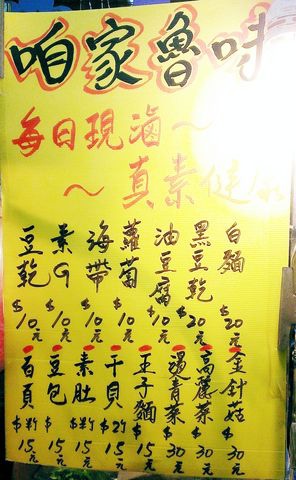 咱家魯味
每日現滷~
~真素健康
白麵 $20元
黑豆乾 $20元
油豆腐 $10元
蘿蔔 $10元
海帶 $10元
素G $10元
豆乾 $10元
金針菇 $30元
高麗菜 $30元
燙青菜 $30元
王子麵 $15元
干貝 $ 15元
素肚 $ 15元
豆包 $15元
百頁 $ 15元